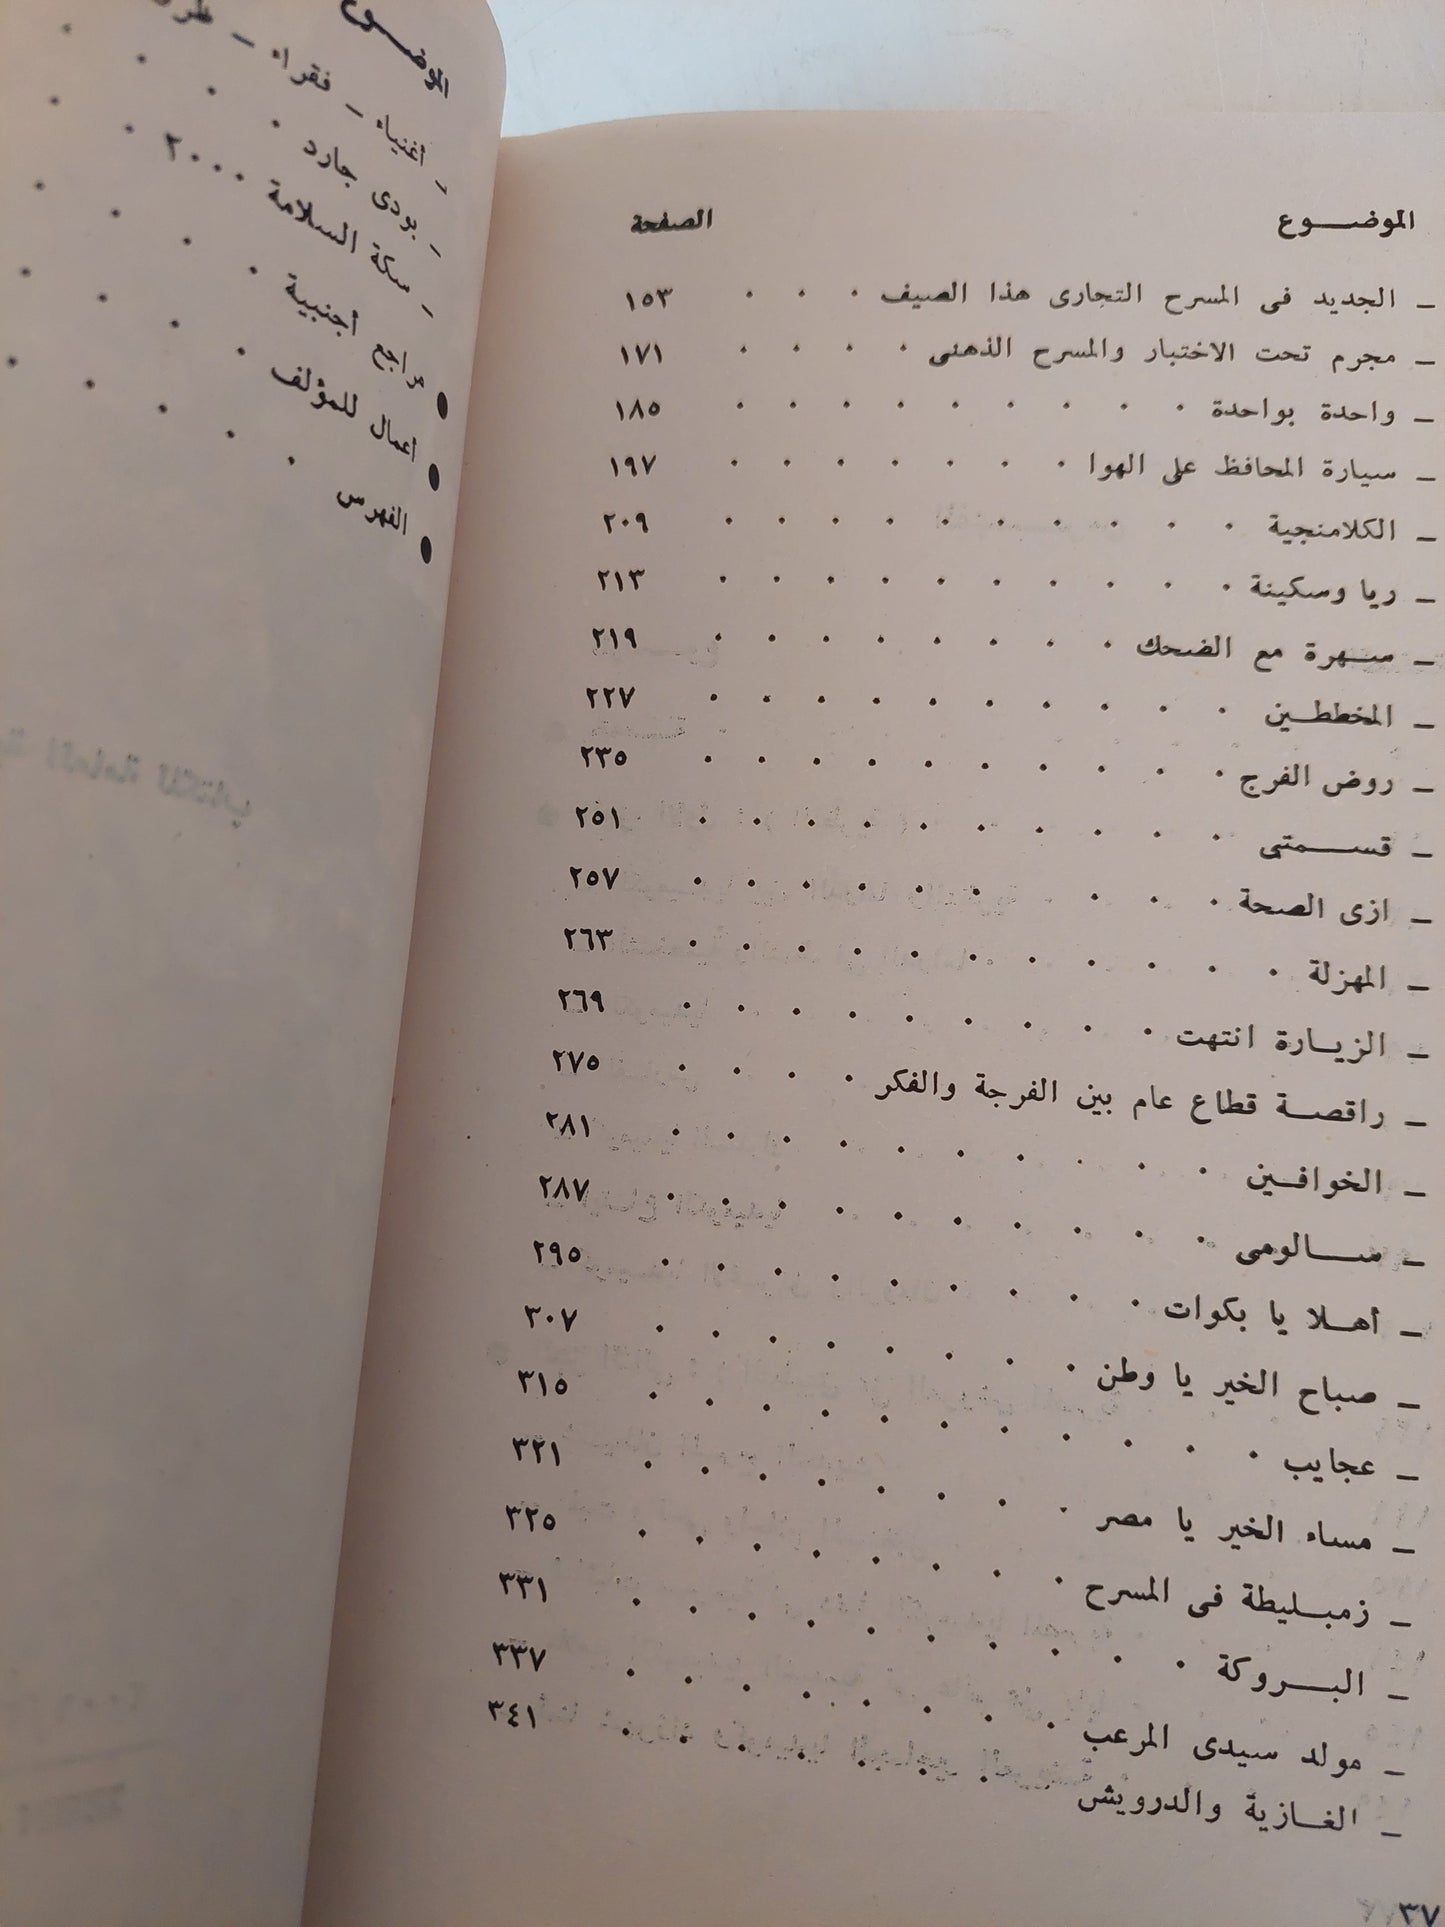 الموضـــوع الصفحة
ـ الجديد فى المسرح التجارى هذا الصيف . . . ١٥٣
ـ مجرم تحت الاختبار والمسرح الذهنى . . . . ١٧١
ـ واحدة بواحدة . . . . . . . . . ١٨٥
ـ سيارة المحافظ على الهوا . . . . . . . ١٩٧
ـ الكلامنجية . . . . . . . . . . ٢٠٩
ـ ريا وسكينة . . . . . . . . . . ٢١٣
ـ سـهرة مع الضحك . . . . . . . . ٢١٩
ـ المخططـين . . . . . . . . . . ٢٢٧
ـ روض الفرج . . . . . . . . . . ٢٣٥
ـ قســـمتى . . . . . . . . . . ٢٥١
ـ ازى الصحة . . . . . . . . . . ٢٥٧
ـ المهزلة . . . . . . . . . . . ٢٦٣
ـ الزيـارة انتهت . . . . . . . . . ٢٦٩
ـ راقصـة قطاع عام بين الفرجة والفكر . . . . ٢٧٥
ـ الخوافـين . . . . . . . . . . ٢٨١
ـ ســـالومى . . . . . . . . . . ٢٨٧
ـ أهـلا يا بكوات . . . . . . . . . ٢٩٥
ـ صباح الخير يا وطن . . . . . . . . ٣٠٧
ـ عجايب . . . . . . . . . . . ٣١٥
ـ مساء الخير يا مصر . . . . . . . . ٣٢١
ـ زمبـليطة فى المسرح . . . . . . . . ٣٢٥
ـ البـــروكة . . . . . . . . . . ٣٣١
ـ مولد سيدى المرعب . . . . . . . . ٣٣٧
ـ الغـازية والدرويش . . . . . . . ٣٤١
ـ أغنياء ـ فقراء ـ
ـ بودى جارد . . . .
ـ سكة السلامة ٢٠٠٠ . .
● مراجع أجنبية . . . .
● أعمال للمؤلف . . . .
● الفهرس . . . . .